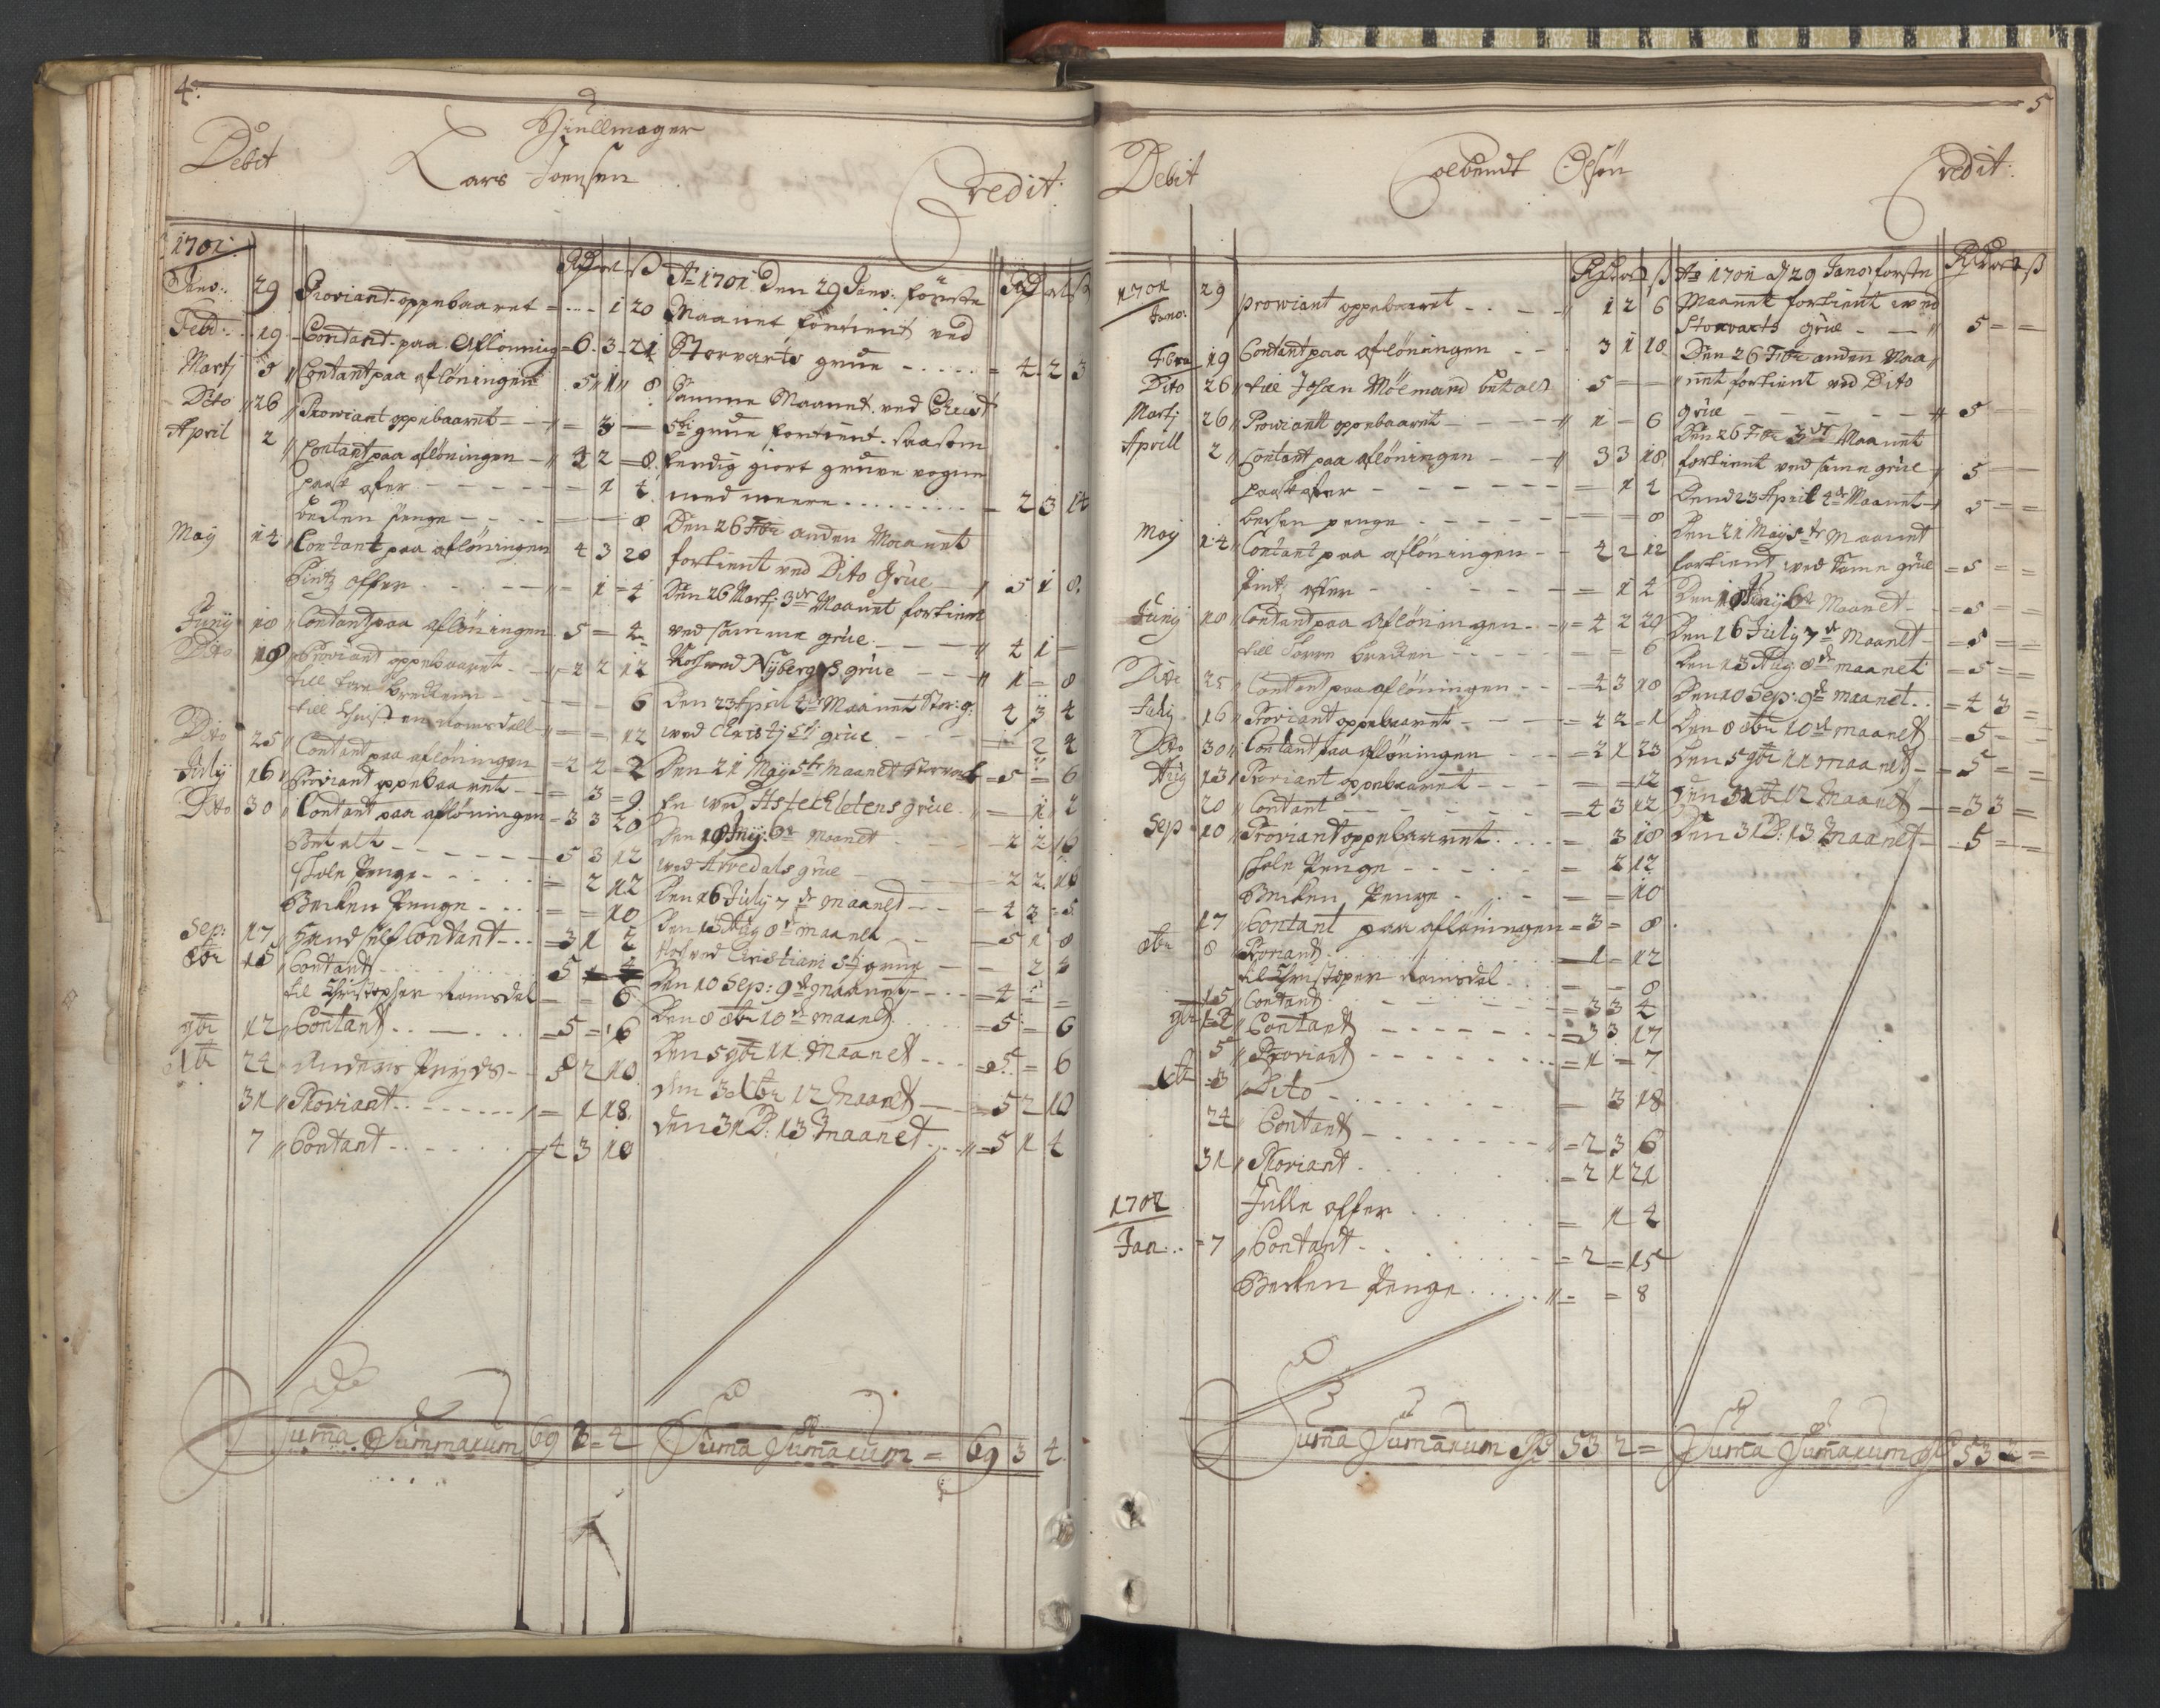 4.
Debet
Hiullmager
Lars Joensen
Credit:
1701:
Rdr ort ß
Janv: 29 Proviant oppebaaret = 1 20
Febr: 19 Contant paa Aflonning = 6 3 21
Martj 5 Contant paa aflöningen 5 1 8
Dito 26 Prowiant oppebaaret = 3 —
April 2 Contant paa aflöningen 4 2 = 8
paask ofer = 1 4
becken penge = — 8
Maij 14 Contant paa aflöningen 4 3 20
Pintz offer = 1 = 4
Junij 18 Contant paa aflöningen 5 = 4
Dito 18 Proviant oppebaaret = 2 2 12
till tore bredtenn — — 6
till Christen Romsdall = = 12
Dito 25 Contant paa aflöningen = 2 2 = 2
Julij 16 Proviant oppebaaret = 3 = 9
Dito 30 Contant paa aflöningen = 3 3 20
Betalt 5 3 12
skole Penge = 2 12
Becken Penge = = 10
Sep: 17 Hand self Contant = 3 1 2
8br 15 Contant 5
til Christopher Romsdal = = 6
9br 12 Contant = 5 = 6
Xbr 24 Anders 5 2 10
31 Proviant = 1 18
7 Contant 4 3 10
Suma Summarum 69 3 = 4
Ao 1701 Den 29 Janv: förste
Maanet förtient ved
Storvarts grue 4 2 3
Samme Maanet ved Christ
5ti grue fortient saasom
ferdig giort gruve vogne
med meere 2 3 14
Den 26 Febr anden Maanet
fortient ved Dito Grue 5 1 8
Den 26 Martj 3de Maanet fortient
ved samme grue 4 1 —
Noch ved Nybergs grue 1 = 8
Den 23 April 4de Maanet Stor: g: 4 3 4
ved Christj 5tj grue = 2 4
Den 21 Maij 5te Maanet Storvarts = 5 = 6
En ved Hestekletens grue = 1 2
Den 18 Junij 6te Maanet 2 2 16
ved Arvedals grue 2 2 16
Den 16 Julij 7de maanet = 4 3 = 5
Den 13 Aug 8de maanet = 5 1 8
Noch ved Christiani 5tj grue — 2 4
Den 10 Sep: 9de maanet = 4 = =
Den 8 8br 10de maanet = 5 = 6
Den 5 9br 11 Maanet = 5 = 6
den 3 Xbr 12 Maanet = 5 2 10
den 31 D: 13 Maanet = 5 1 4
Suma Sumarum = 69 3 4
5
Debit
Olsön
Credit:
1701
Janv: 29 prowiant oppebaaret 1 2 6
Febru 19 Contant paa aflöningen 3 1 18
Dito 26 till Johan Mölmand betalt 5 = —
Martj 26 Prowiant oppebaaret 1 — 6
Aprill 2 Contant paa aflöningen 3 3 18
paask ofer = 1 4
becken penge = = 8
Maij 14 Contant paa aflöningen 4 2 12
Pintz offer = 1 4
Junij 18 Contant paa aflöningen = 4 2 20
till torre bredten = = 6
Dito 25 Contant paa aflöningen = 4 3 18
Julij 16 Proviant oppebaaret = 2 2 = 1
Dito 30 Contant paa aflöningen = 2 1 23
Aug 13 Proviant oppebaaret = = 12
20 Contant = 4 3 12
Sep 10 Proviant oppebaaret = 3 18
skole Penge = 2 12
Becken Penge = = 10
17 Contant paa aflöningen = 3 = 8
8br 8 Proviant 1 = 12
til Christoper Romsdal = = 8
15 Contant = 3 3 4
9br 12 Contant = 3 3 17
5 Proviant = 1 = 7
Xbr 3 Dito = 3 18
24 Contant = 2 3 6
31 Proviant = 2 1 21
1702
Julle offer = 1 4
Jan: 7 Contant = 2 = 15
Becken Penge = = 8
Suma Sumarum Rd 53 2 =
Ao 1701 d 29 Janv: forste
Maanet fortient ved
Storvarts grue 5 = =
Den 26 Febr anden Maa
net fortient ved Dito
grue 5 =
Den 26 3de Maanet
fortient ved same grue 5 —
Dend 23 April 4de Maanet 5 = =
Den 21 Maij 5te Maanet
fortient ved Same grue = 5 = =
Den 18 Junij 6te Maanet = 5 = =
Den 16 Julij 7de Maanet = 5 = =
Den 13 Aug 8de maanet = 5 = =
Den 10 Sep: 9de maanet = 4 3 =
Den 8 8br 10de maanet = 5 = =
Den 5 9br 11 maanet = 5 = =
Den 3 Xbr 12 Maanet = 3 3 =
Den 31 D: 13 Maanet 5 = =
Suma Sumarum Rd 53 2 =